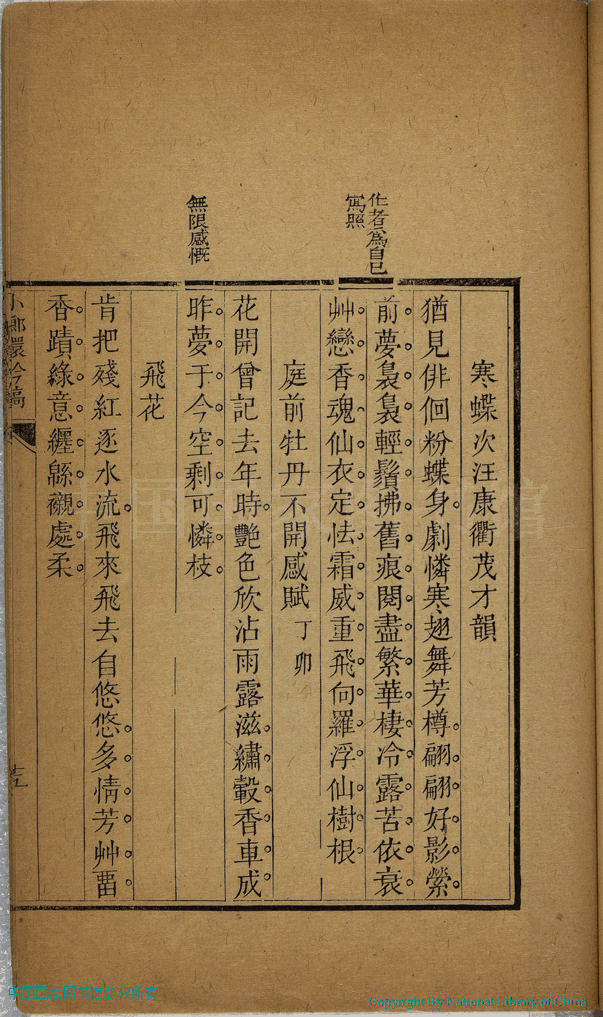 作者爲自己
寫照
寒蝶次汪康衢茂才韻
猶見俳佪粉蝶身劇憐寒翅舞芳樽翩翩好影縈
前夢裊裊輕鬚拂舊痕閱盡繁華棲冷露苦依衰
艸戀香魂仙衣定怯霜威重飛向羅浮仙樹根
庭前牡丹不開感賦丁卯
無限感慨
花開曾記去年時艷色欣沾雨露滋繡轂香車成
昨夢于今空剩可憐枝
飛花
肯把殘紅逐水流飛來飛去自悠悠多情芳艸畱
香蹟綠意纒緜襯處柔
小嫏嬛吟稿
Copyright By National Library of China